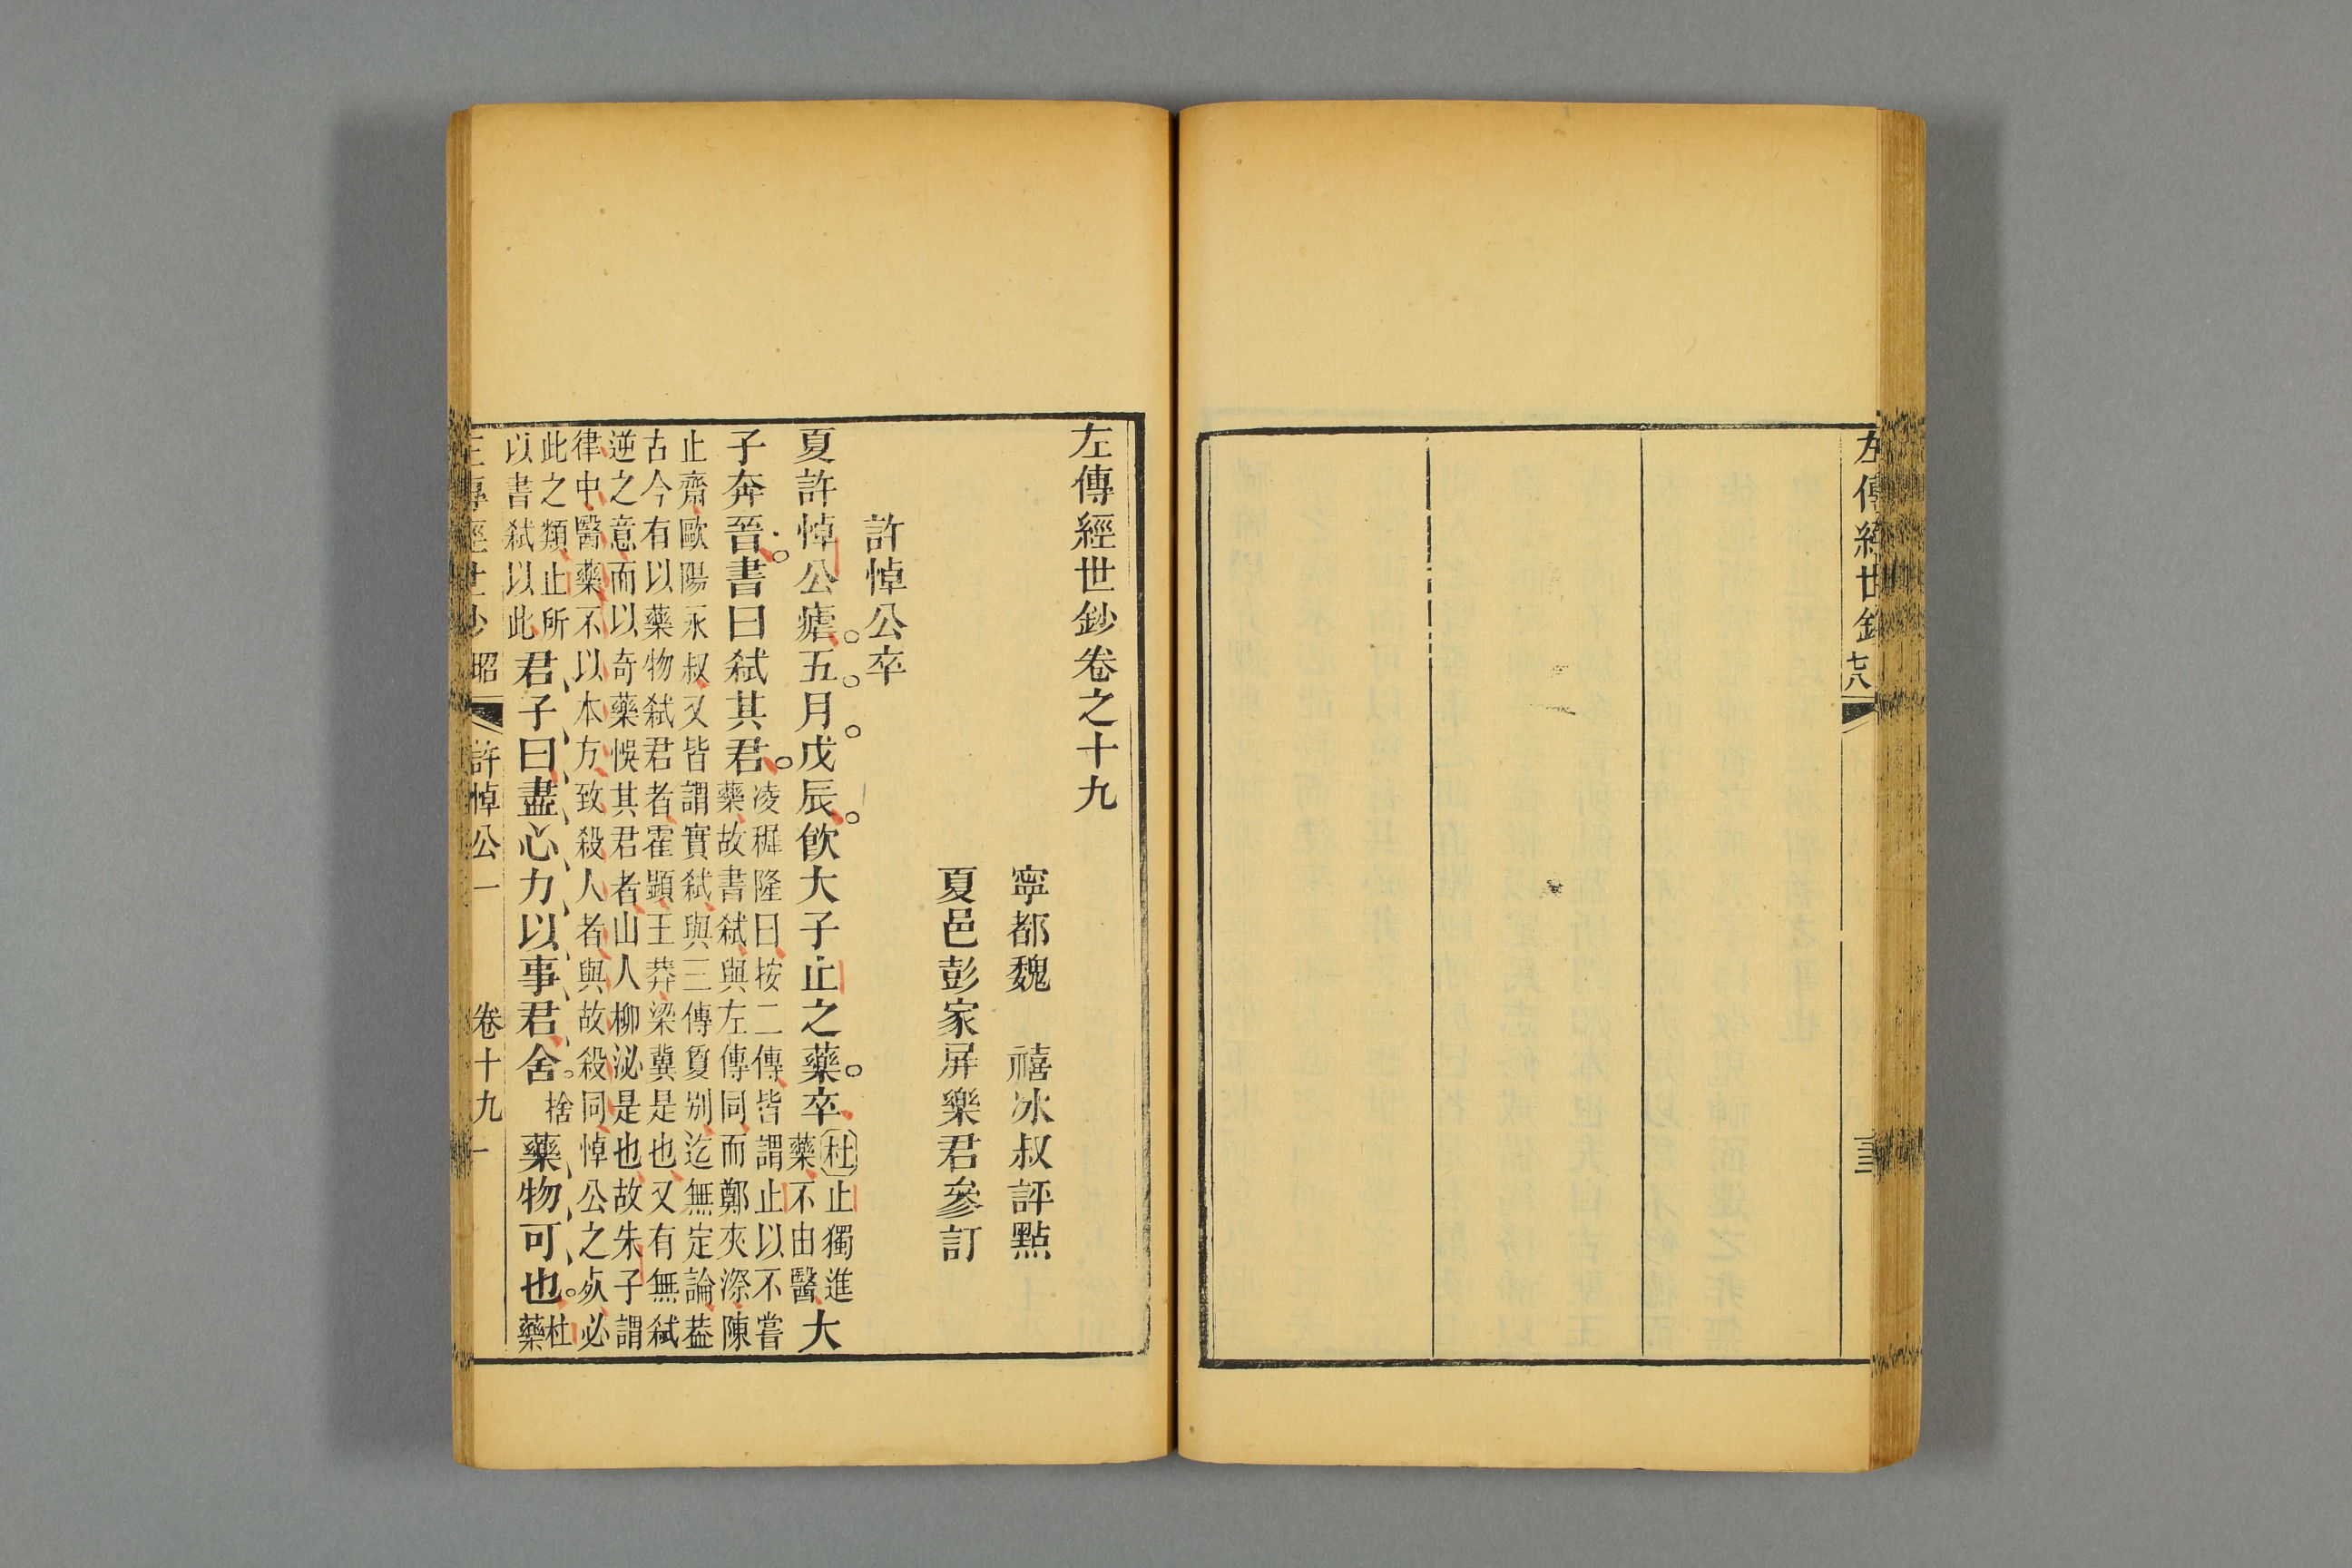 左傳經世鈔 十八
左傳經世鈔卷之十九
寧都魏　禧冰叔評點
夏邑彭家屏樂君參訂
許悼公卒
夏許悼公瘧。五。月。戊辰。飲大子止之藥。卒杜止獨進藥不由醫大
子奔晉。書曰弒其君。凌穉隆曰按二傳皆謂止以不嘗
藥故書弒與左傳同而鄭夾漈陳
止齋歐陽永叔又皆謂實弒與三傳夐別迄無定論葢
古今有以藥物弒君者霍顯王莽梁冀是也又有無弒
逆之意而以奇藥悞其君者山人柳泌是也故朱子謂
律中醫藥不以本方致殺人者與故殺同悼公之死必
此之類止所
以書弒以此君子曰盡心力以事君舍。捨藥物可也。杜藥
左傳經世鈔　昭　許悼公一　卷十九　一